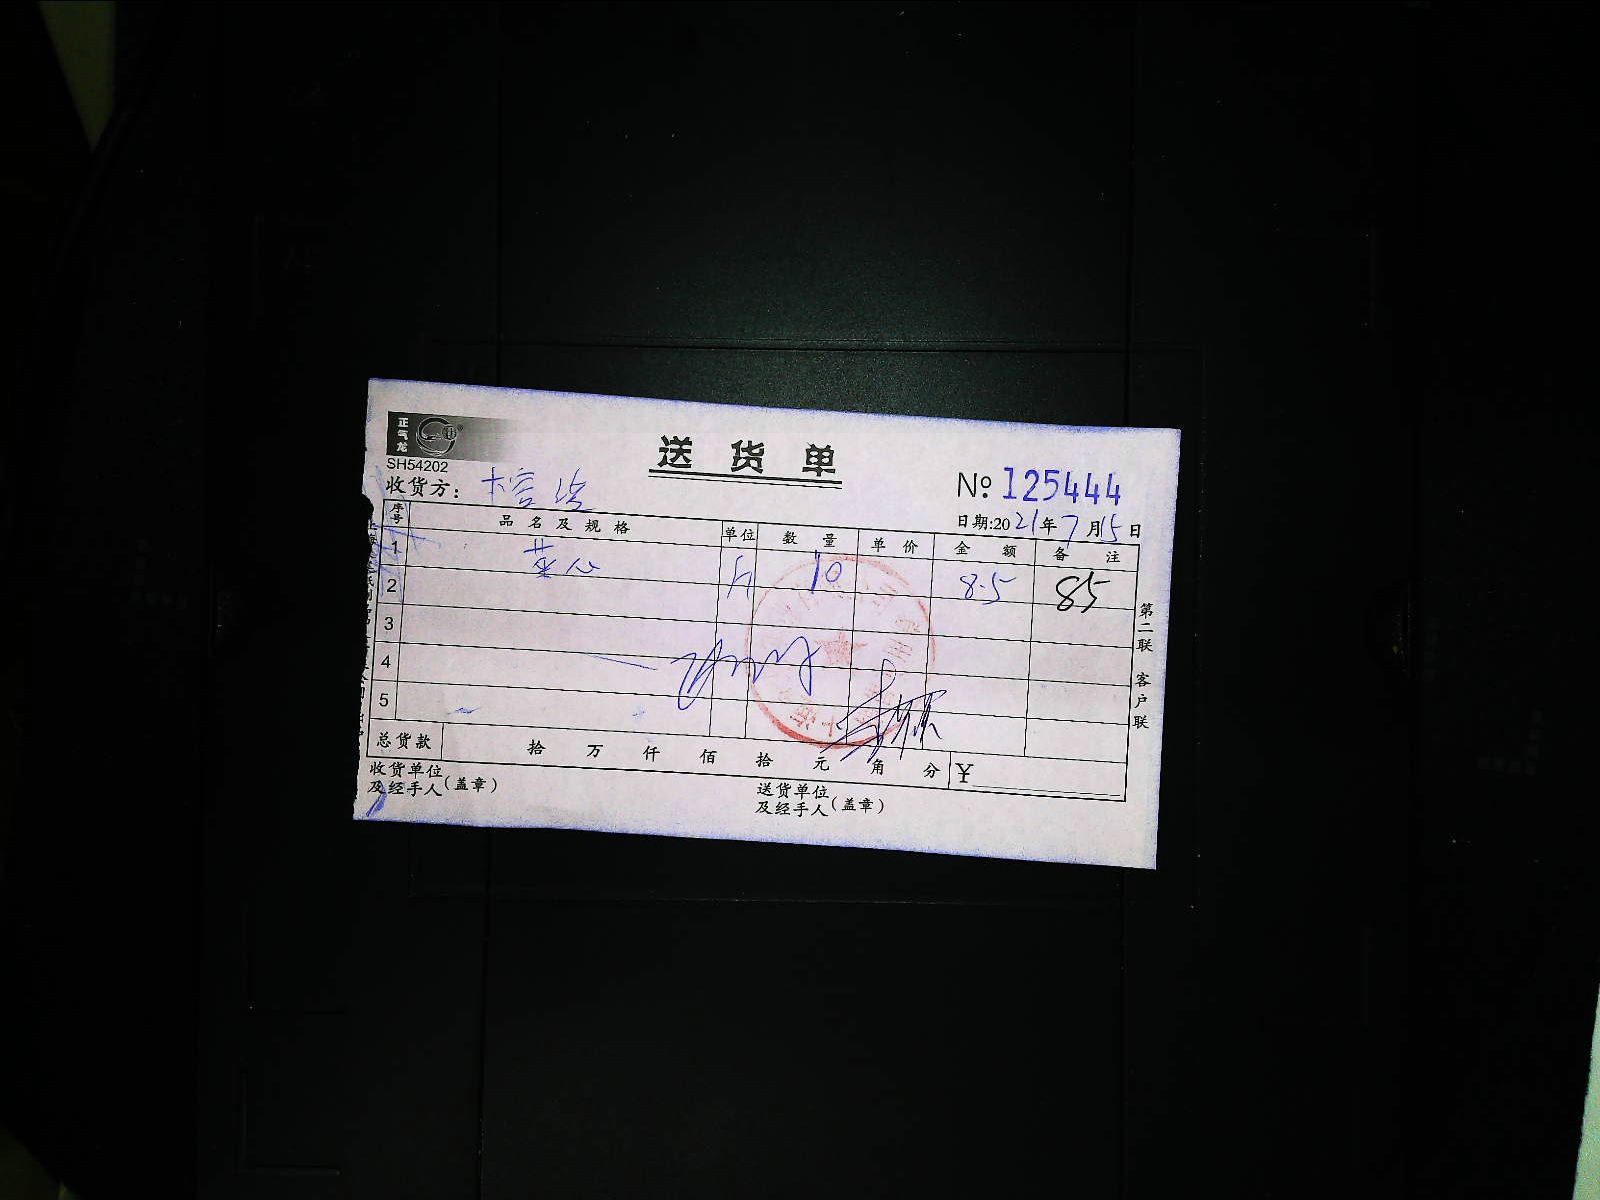 正气龙
SH54202
送 货 单
№ 125444
收货方：
日期:2021年7月15日
序号 品名及规格 单位 数量 单价 金额 备注
1 菜心 斤 10 8.5 85
2
3
4
5
总货款 拾 万 仟 佰 拾 元 角 分 ¥
收货单位
及经手人(盖章)
送货单位
及经手人(盖章)
第二联 客户联